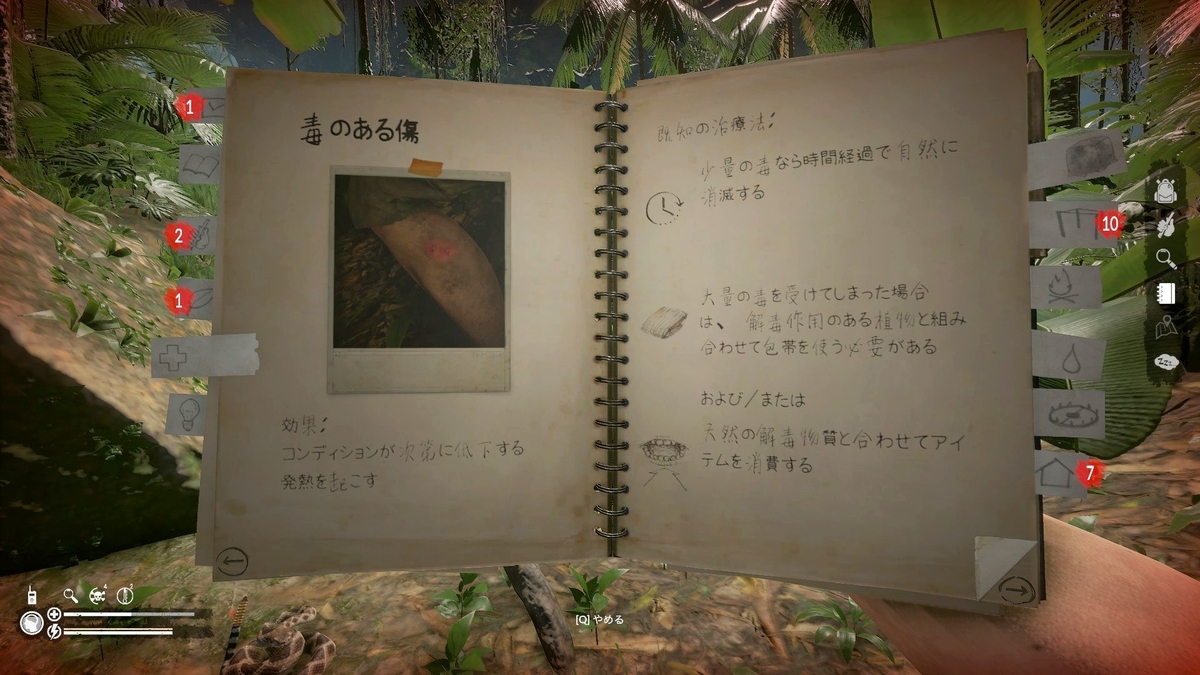 毒のある傷
効果:
コンディションが次第に低下する
発熱を起こす
既知の治療法:
少量の毒なら時間経過で自然に
消滅する
大量の毒を受けてしまった場合
は、 解毒作用のある植物と組み
合わせて包帯を使う必要がある
および/または
天然の解毒物質と合わせてアイ
テムを消費する
1
2
1
10
7
zzz
4
2
[Q] やめる